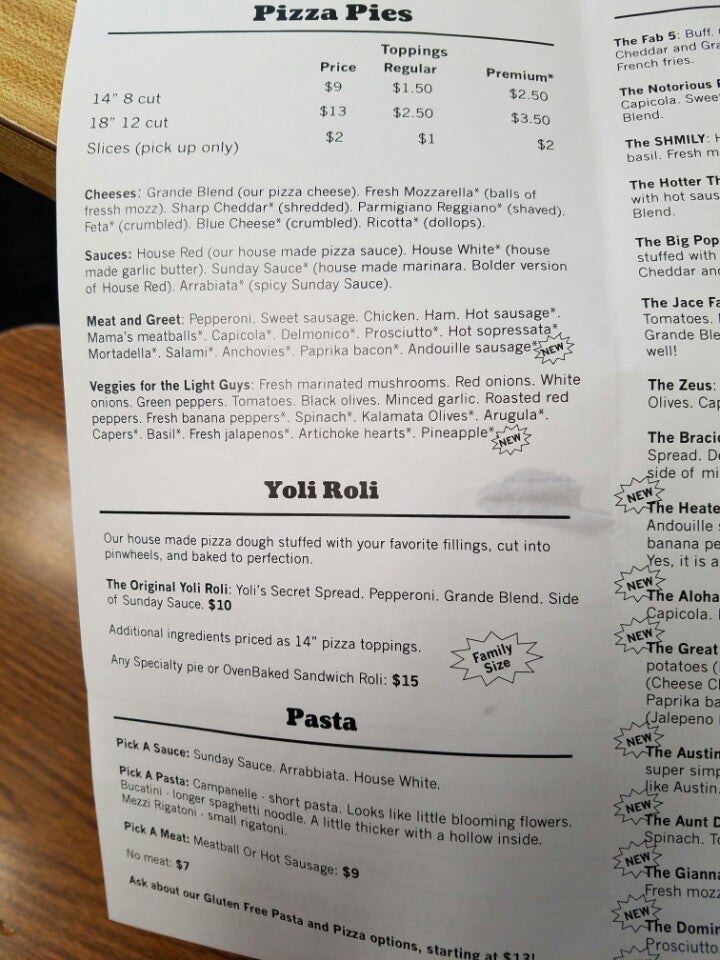 Pizza Pies
Toppings
Price Regular Premium*
14" 8 cut $9 $1.50 $2.50
18" 12 cut $13 $2.50 $3.50
Slices (pick up only) $2 $1 $2
Cheeses: Grande Blend (our pizza cheese). Fresh Mozzarella* (balls of
fressh mozz). Sharp Cheddar* (shredded). Parmigiano Reggiano* (shaved).
Feta* (crumbled). Blue Cheese* (crumbled). Ricotta* (dollops).
Sauces: House Red (our house made pizza sauce). House White* (house
made garlic butter). Sunday Sauce* (house made marinara. Bolder version
of House Red). Arrabiata* (spicy Sunday Sauce).
Meat and Greet: Pepperoni. Sweet sausage. Chicken. Ham. Hot sausage*.
Mama's meatballs*. Capicola*. Delmonico*. Prosciutto*. Hot sopressata*
Mortadella*. Salami*. Anchovies*. Paprika bacon*. Andouille sausage* NEW
Veggies for the Light Guys: Fresh marinated mushrooms. Red onions. White
onions. Green peppers. Tomatoes. Black olives. Minced garlic. Roasted red
peppers. Fresh banana peppers*. Spinach*. Kalamata Olives*. Arugula*.
Capers*. Basil*. Fresh jalapenos*. Artichoke hearts*. Pineapple* NEW
Yoli Roli
Our house made pizza dough stuffed with your favorite fillings, cut into
pinwheels, and baked to perfection.
The Original Yoli Roli: Yoli's Secret Spread. Pepperoni. Grande Blend. Side
of Sunday Sauce. $10
Additional ingredients priced as 14" pizza toppings.
Any Specialty pie or OvenBaked Sandwich Roli: $15
Family
Size
Pasta
Pick A Sauce: Sunday Sauce. Arrabbiata. House White.
Pick A Pasta: Campanelle - short pasta. Looks like little blooming flowers.
Bucatini - longer spaghetti noodle. A little thicker with a hollow inside.
Mezzi Rigatoni - small rigatoni.
Pick A Meat: Meatball Or Hot Sausage: $9
No meat: $7
Ask about our Gluten Free Pasta and Pizza options, starting at $13!
The Fab 5: Buff.
Cheddar and
French fries.
The Notorious
Capicola.
Blend.
The SHMILY:
basil. Fresh
The Hotter
with hot
Blend.
The Big
stuffed with
Cheddar
The Jace
Tomatoes.
Grande
well!
The Zeus:
Olives.
The
Spread.
side of
NEW
The
Andouille
banana
Yes, it is a
NEW
The
Capicola.
NEW
The Great
potatoes
(Cheese
Paprika
(Jalepeno
NEW
The
super
like Austin.
NEW
The Aunt
Spinach.
NEW
The
Fresh
NEW
The
Prosciutto.